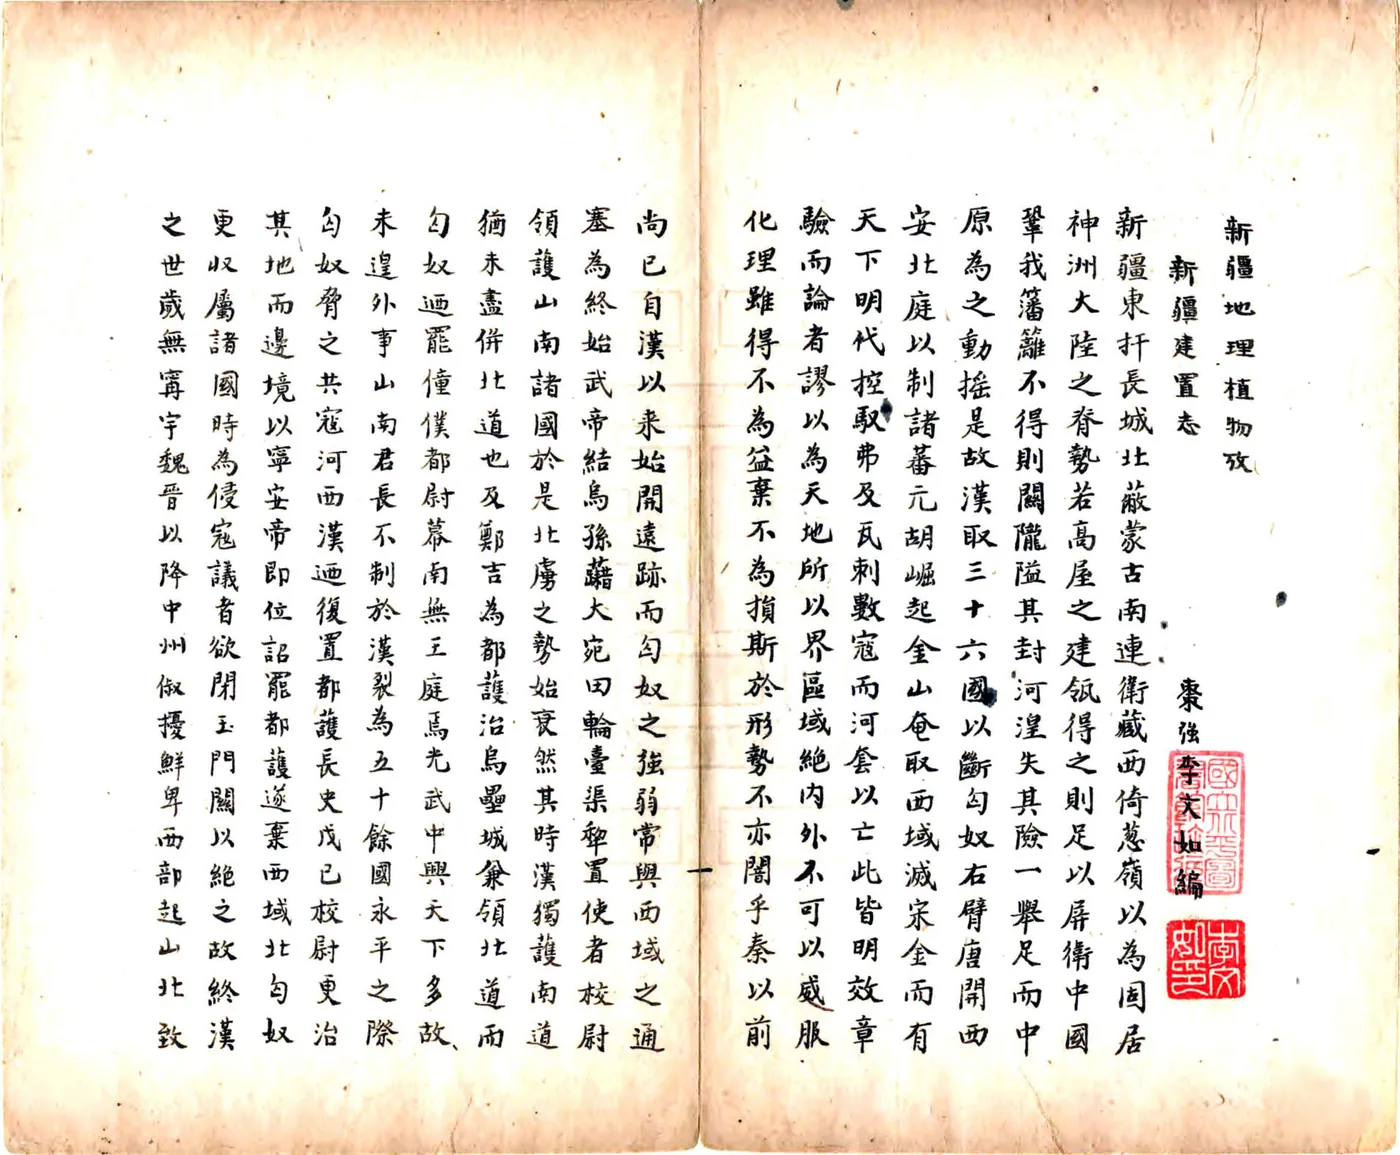 新疆地理植物攷
新疆建置志
棗強李文如編
新疆東扞長城北蔽蒙古南連衛藏西倚蔥嶺以為固居
神洲大陸之脊勢若高屋之建瓴得之則足以屏衛中國
鞏我籓籬不得則關隴隘其封河湟失其險一舉足而中
原為之動搖是故漢取三十六國以斷匈奴右臂唐開西
安北庭以制諸蕃元胡崛起金山奄取西域滅宋金而有
天下明代控馭弗及瓦刺數寇而河套以亡此皆明效章
驗而論者謬以為天地所以界區域絶內外不可以威服
化理雖得不為益棄不為損斯於形勢不亦闇乎秦以前
尚已自漢以来始開遠跡而匈奴之強弱常與西域之通
塞為終始武帝結烏孫藉大宛田輪臺渠犂置使者校尉
領護山南諸國於是北虜之勢始衰然其時漢獨護南道
猶未盡併北道也及鄭吉為都護治烏壘城兼領北道而
匈奴迺罷僮僕都尉幕南無王庭焉光武中興天下多故
未遑外事山南君長不制於漢裂為五十餘國永平之際
匈奴脅之共寇河西漢迺復置都護長史戊已校尉更治
其地而邊境以寧安帝即位詔罷都護遂棄西域北匈奴
更收屬諸國時為侵寇議者欲閉玉門關以絶之故終漢
之世歲無寗宇魏晉以降中州俶擾鮮卑西部起山北致
李文如印